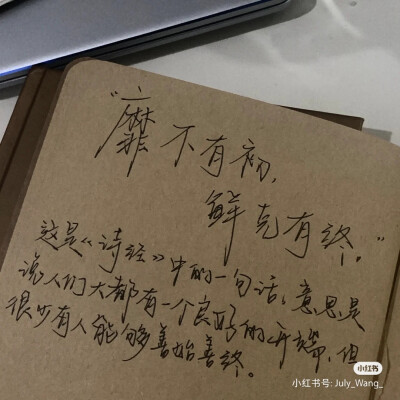 “靡不有初，
鲜克有终。”
这是《诗经》中的一句话，意思是
说人们大都有一个良好的开端，但
很少有人能够善始善终。
小红书
小红书号: July_Wang_